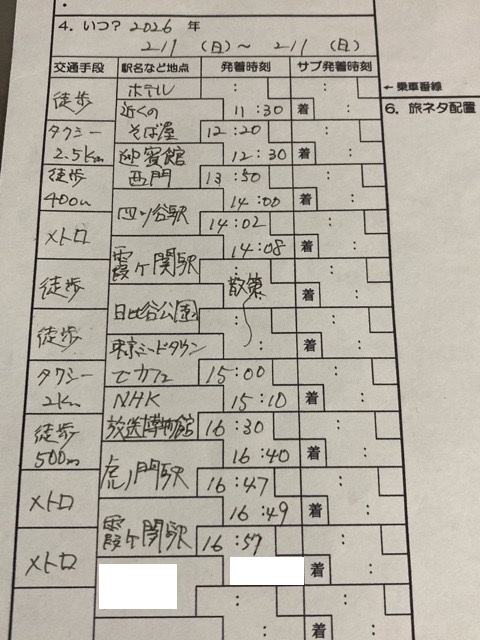 4. いつ？ 2026 年
2/1 (日) ～ 2/1 (日)
交通手段 駅名など地点 発着時刻 サブ発着時刻
←乗車番線
6. 旅ネタ配置
徒歩 ホテル
近くの 11:30 着 :
タクシー そば屋 12:20 :
2.5km 迎賓館 12:30 着 :
徒歩 西門 13:50 :
400m 14:00 着 :
四ツ谷駅 14:02 :
メトロ 14:08 着 :
霞ヶ関駅 : :
徒歩 散策 着 :
日比谷公園 : :
徒歩 東京ミッドタウン : 着 :
タクシー でカフェ 15:00 :
2km NHK 15:10 着 :
徒歩 放送博物館 16:30 :
500m 16:40 着 :
虎ノ門駅 16:47 :
メトロ 16:49 着 :
霞ヶ関駅 16:57 :
メトロ 着 :
: :